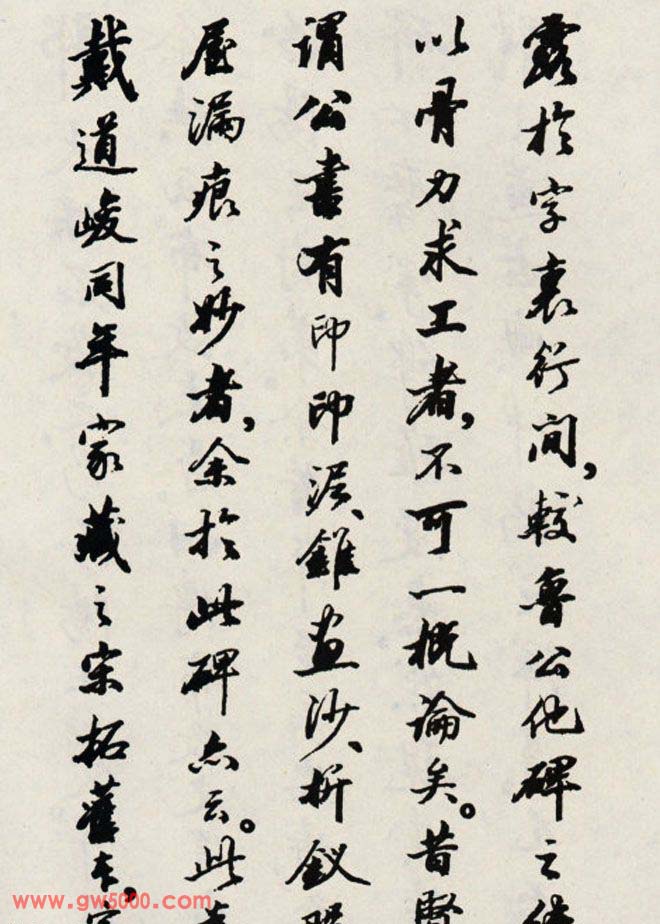 露於字裏行间，較魯公他碑之
以骨力求工者，不可一概論矣。昔賢
谓公書有印印泥、錐画沙、折釵
屋漏痕之妙者，余於此碑亦云。此
戴道峻同年家藏之宋拓舊本，
www.gw5000.com